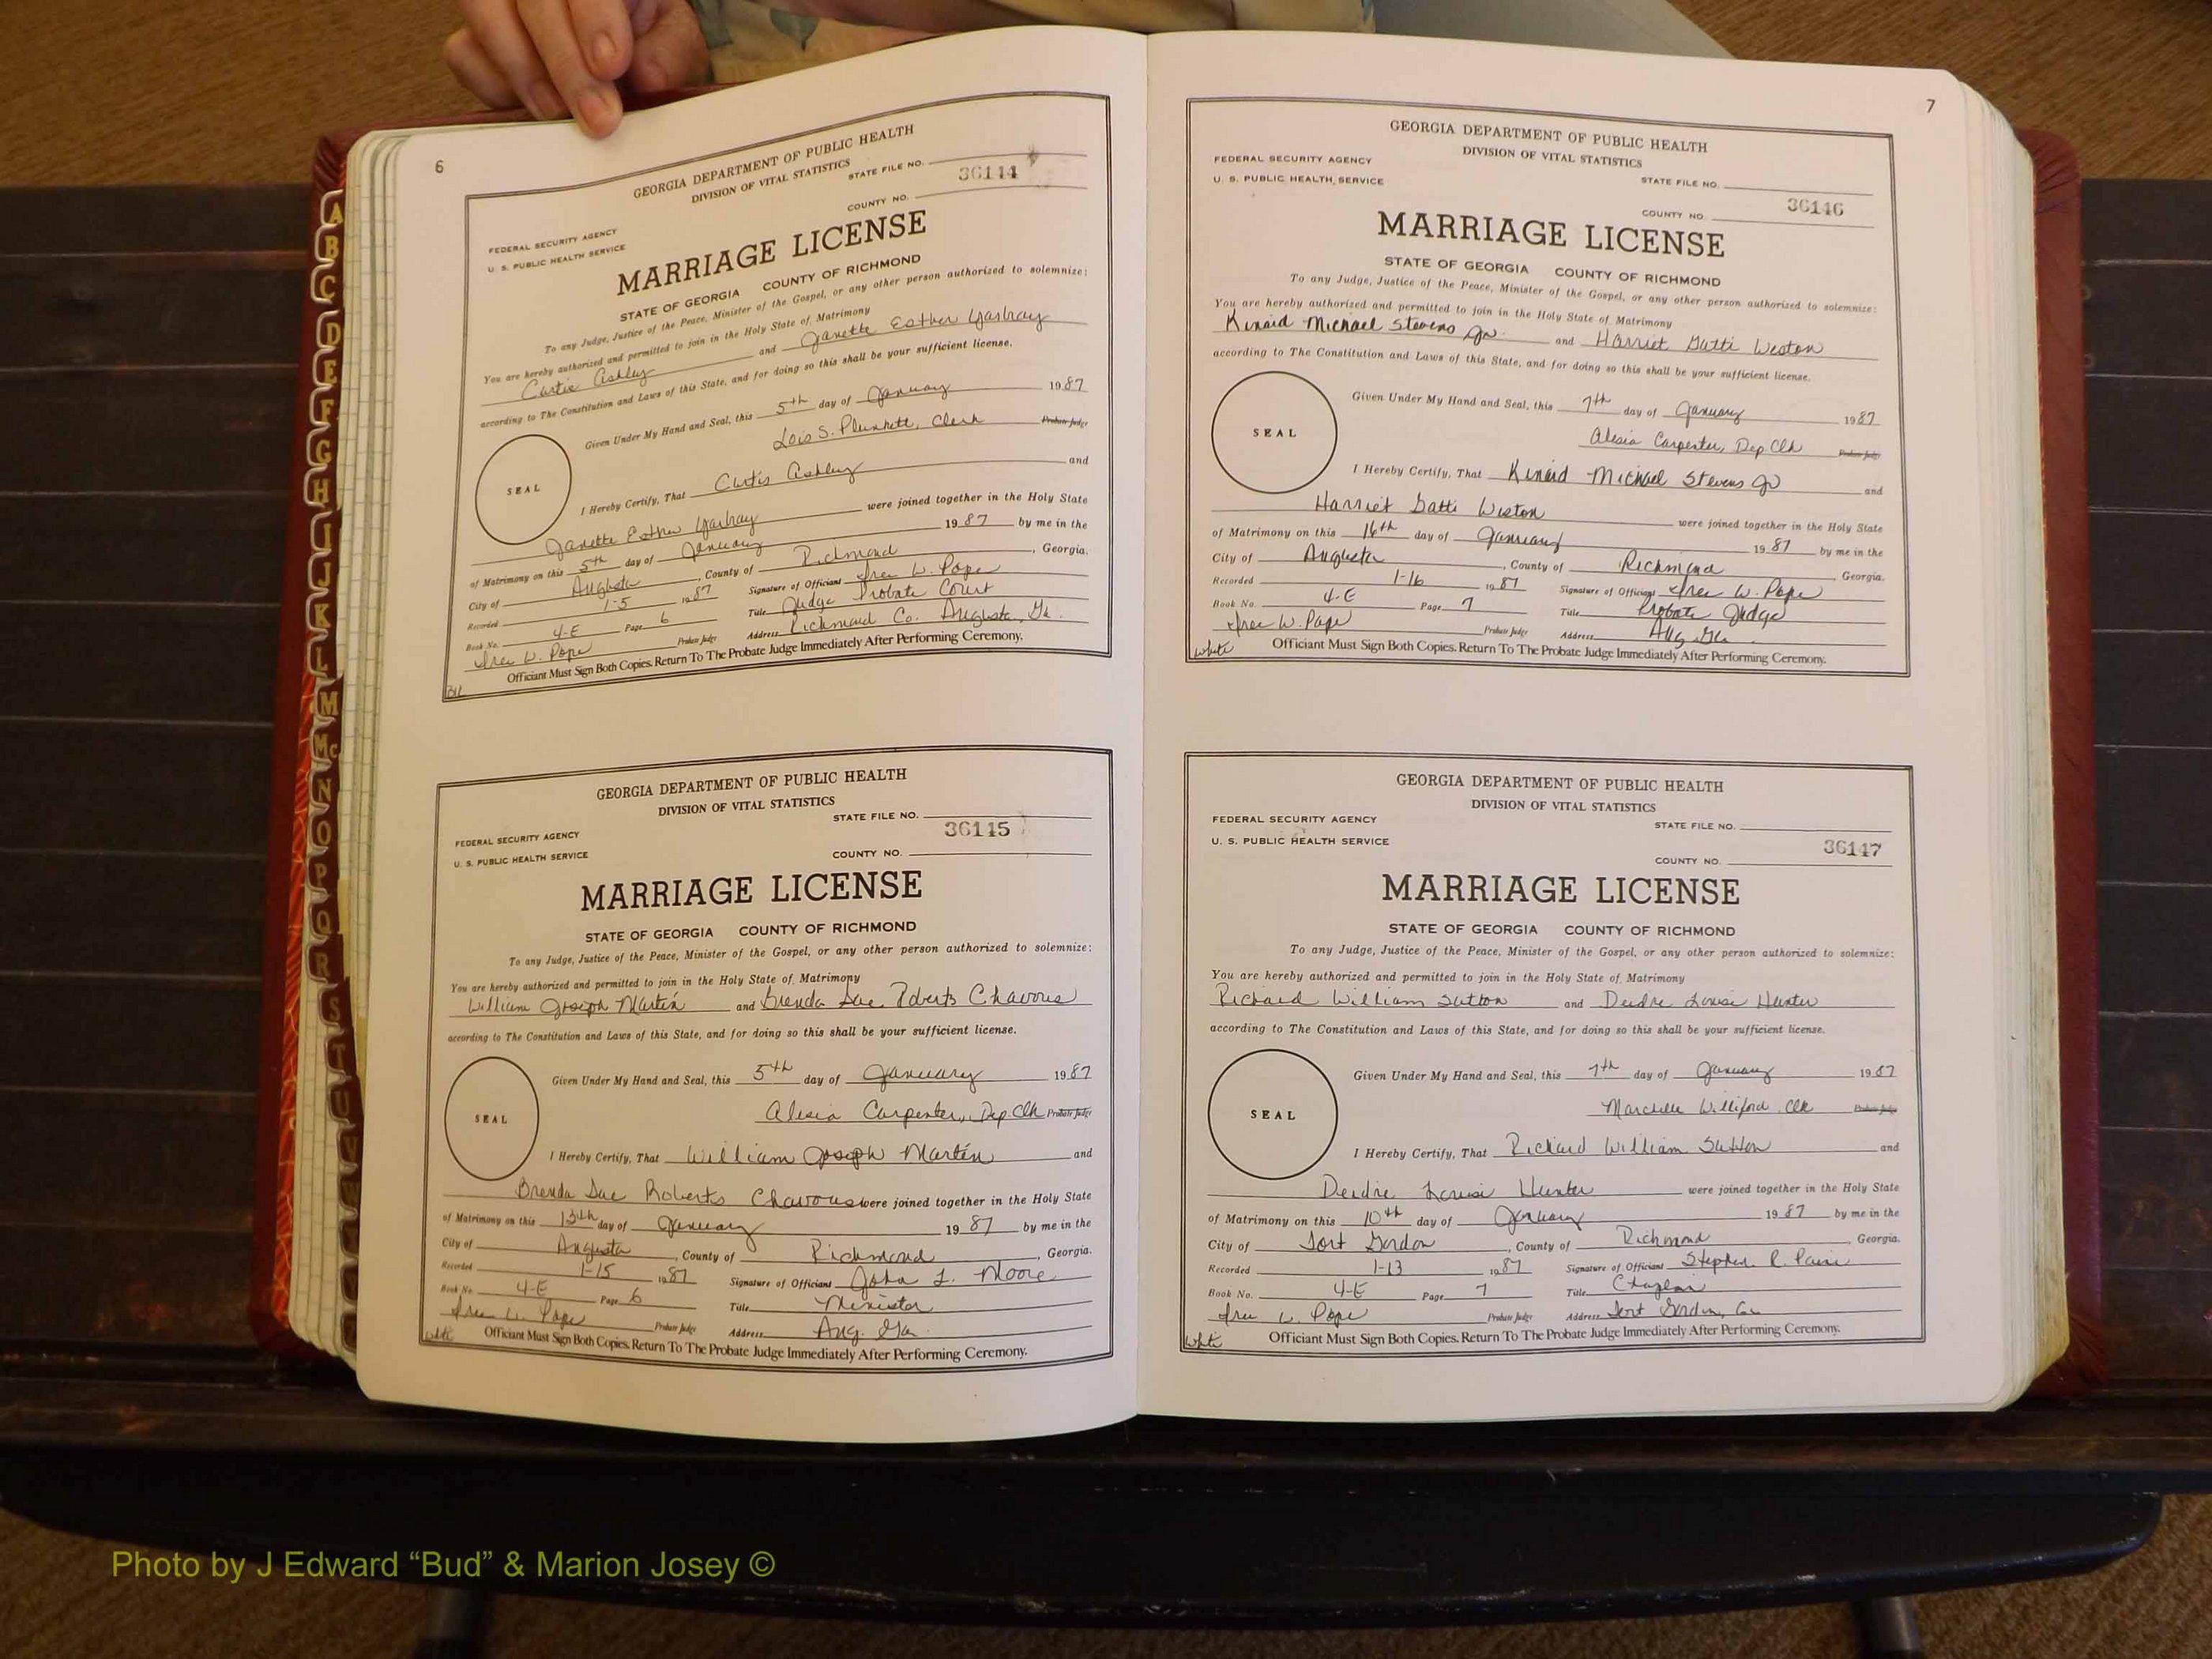 6
GEORGIA DEPARTMENT OF PUBLIC HEALTH
DIVISION OF VITAL STATISTICS
STATE FILE NO.
36144
FEDERAL SECURITY AGENCY
COUNTY NO.
U. S. PUBLIC HEALTH SERVICE
MARRIAGE LICENSE
STATE OF GEORGIA COUNTY OF RICHMOND
To any Judge, Justice of the Peace, Minister of the Gospel, or any other person authorized to solemnize:
You are hereby authorized and permitted to join in the Holy State of Matrimony
Curtis Ashley and Janette Esther
according to The Constitution and Laws of this State, and for doing so this shall be your sufficient license.
Given Under My Hand and Seal, this 5th day of January 1987
Lois S. Plunkett, Clerk Probate Judge
SEAL
I Hereby Certify, That Curtis Ashley and
Janette Esther were joined together in the Holy State
of Matrimony on this 5th day of January 1987 by me in the
City of Augusta, County of Richmond, Georgia.
Recorded 1-5 1987 Signature of Officiant W. Pope
Book No. 4-E Page 6 Title Judge Probate Court
W. Pope Probate Judge Address Richmond Co. Augusta, Ga.
Officiant Must Sign Both Copies. Return To The Probate Judge Immediately After Performing Ceremony.
GEORGIA DEPARTMENT OF PUBLIC HEALTH
DIVISION OF VITAL STATISTICS
STATE FILE NO.
36145
FEDERAL SECURITY AGENCY
U. S. PUBLIC HEALTH SERVICE COUNTY NO.
MARRIAGE LICENSE
STATE OF GEORGIA COUNTY OF RICHMOND
To any Judge, Justice of the Peace, Minister of the Gospel, or any other person authorized to solemnize:
You are hereby authorized and permitted to join in the Holy State of Matrimony
William Joseph Martin and Brenda Sue Roberts Chavous
according to The Constitution and Laws of this State, and for doing so this shall be your sufficient license.
Given Under My Hand and Seal, this 5th day of January 1987
Alesia Carpenter, Dep. Clk Probate Judge
SEAL
I Hereby Certify, That William Joseph Martin and
Brenda Sue Roberts Chavous were joined together in the Holy State
of Matrimony on this 13th day of January 1987 by me in the
City of Augusta, County of Richmond, Georgia.
Recorded 1-15 1987 Signature of Officiant John L. Moore
Book No. 4-E Page 6 Title Minister
W. Pope Probate Judge Address Aug. Ga.
white Officiant Must Sign Both Copies. Return To The Probate Judge Immediately After Performing Ceremony.
7
GEORGIA DEPARTMENT OF PUBLIC HEALTH
DIVISION OF VITAL STATISTICS
FEDERAL SECURITY AGENCY
U. S. PUBLIC HEALTH SERVICE STATE FILE NO.
36146
COUNTY NO.
MARRIAGE LICENSE
STATE OF GEORGIA COUNTY OF RICHMOND
To any Judge, Justice of the Peace, Minister of the Gospel, or any other person authorized to solemnize:
You are hereby authorized and permitted to join in the Holy State of Matrimony
Kinaid Michael Stevens Jr. and Harriet Weston
according to The Constitution and Laws of this State, and for doing so this shall be your sufficient license.
Given Under My Hand and Seal, this 7th day of January 1987
Alesia Carpenter, Dep Clk Probate Judge
SEAL
I Hereby Certify, That Kinaid Michael Stevens Jr and
Harriet Weston were joined together in the Holy State
of Matrimony on this 16th day of January 1987 by me in the
City of Augusta, County of Richmond, Georgia.
Recorded 1-16 1987 Signature of Officiant W. Pope
Book No. 4-E Page 7 Title Probate Judge
W. Pope Probate Judge Address Aug Ga.
white Officiant Must Sign Both Copies. Return To The Probate Judge Immediately After Performing Ceremony.
GEORGIA DEPARTMENT OF PUBLIC HEALTH
DIVISION OF VITAL STATISTICS
FEDERAL SECURITY AGENCY STATE FILE NO.
U. S. PUBLIC HEALTH SERVICE 36147
COUNTY NO.
MARRIAGE LICENSE
STATE OF GEORGIA COUNTY OF RICHMOND
To any Judge, Justice of the Peace, Minister of the Gospel, or any other person authorized to solemnize:
You are hereby authorized and permitted to join in the Holy State of Matrimony
Richard William Sutton and Deidre Louise Hunter
according to The Constitution and Laws of this State, and for doing so this shall be your sufficient license.
Given Under My Hand and Seal, this 7th day of January 1987
Williford, Clk Probate Judge
SEAL
I Hereby Certify, That Richard William Sutton and
Deidre Louise Hunter were joined together in the Holy State
of Matrimony on this 10th day of January 1987 by me in the
City of Fort Gordon, County of Richmond, Georgia.
Recorded 1-13 1987 Signature of Officiant Stephen R.
Book No. 4-E Page 7 Title Chaplain
W. Pope Probate Judge Address Fort Gordon, Ga
white Officiant Must Sign Both Copies. Return To The Probate Judge Immediately After Performing Ceremony.
A
B
C
D
E
F
G
H
I
J
K
L
M
Mc
N
O
P
Q
R
S
T
U
Photo by J Edward “Bud” & Marion Josey ©